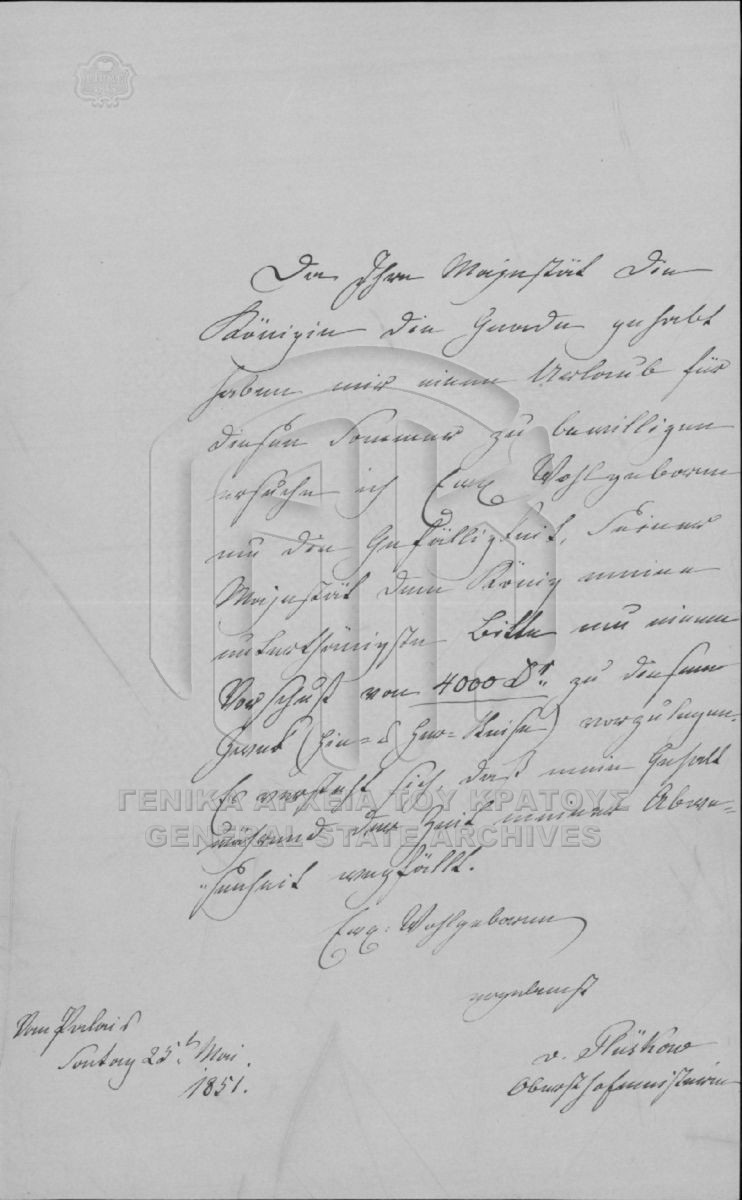 Da Ihre Majestät die
Königin die Gnade gehabt
haben mir einen Urlaub für
diesen Sommer zu bewilligen
ersuche ich Euer Wohlgeboren
um die Gefälligkeit, Seiner
Majestät dem König meine
unterthänigste Bitte um einen
Vorschuß von 4000 Dr. zu diesem
Zweck (Hin- & Her-Reise) vorzulegen.
Es versteht sich daß mein Gehalt
während der Zeit meiner Abwe-
senheit wegfällt.
Euer Wohlgeboren
ergebenst
Vom Palais
Sontag 25t. Mai.
1851.
v. Plüskow
Obersthofmeisterin
ΓΕΝΙΚΑ ΑΡΧΕΙΑ ΤΟΥ ΚΡΑΤΟΥΣ
GENERAL STATE ARCHIVES